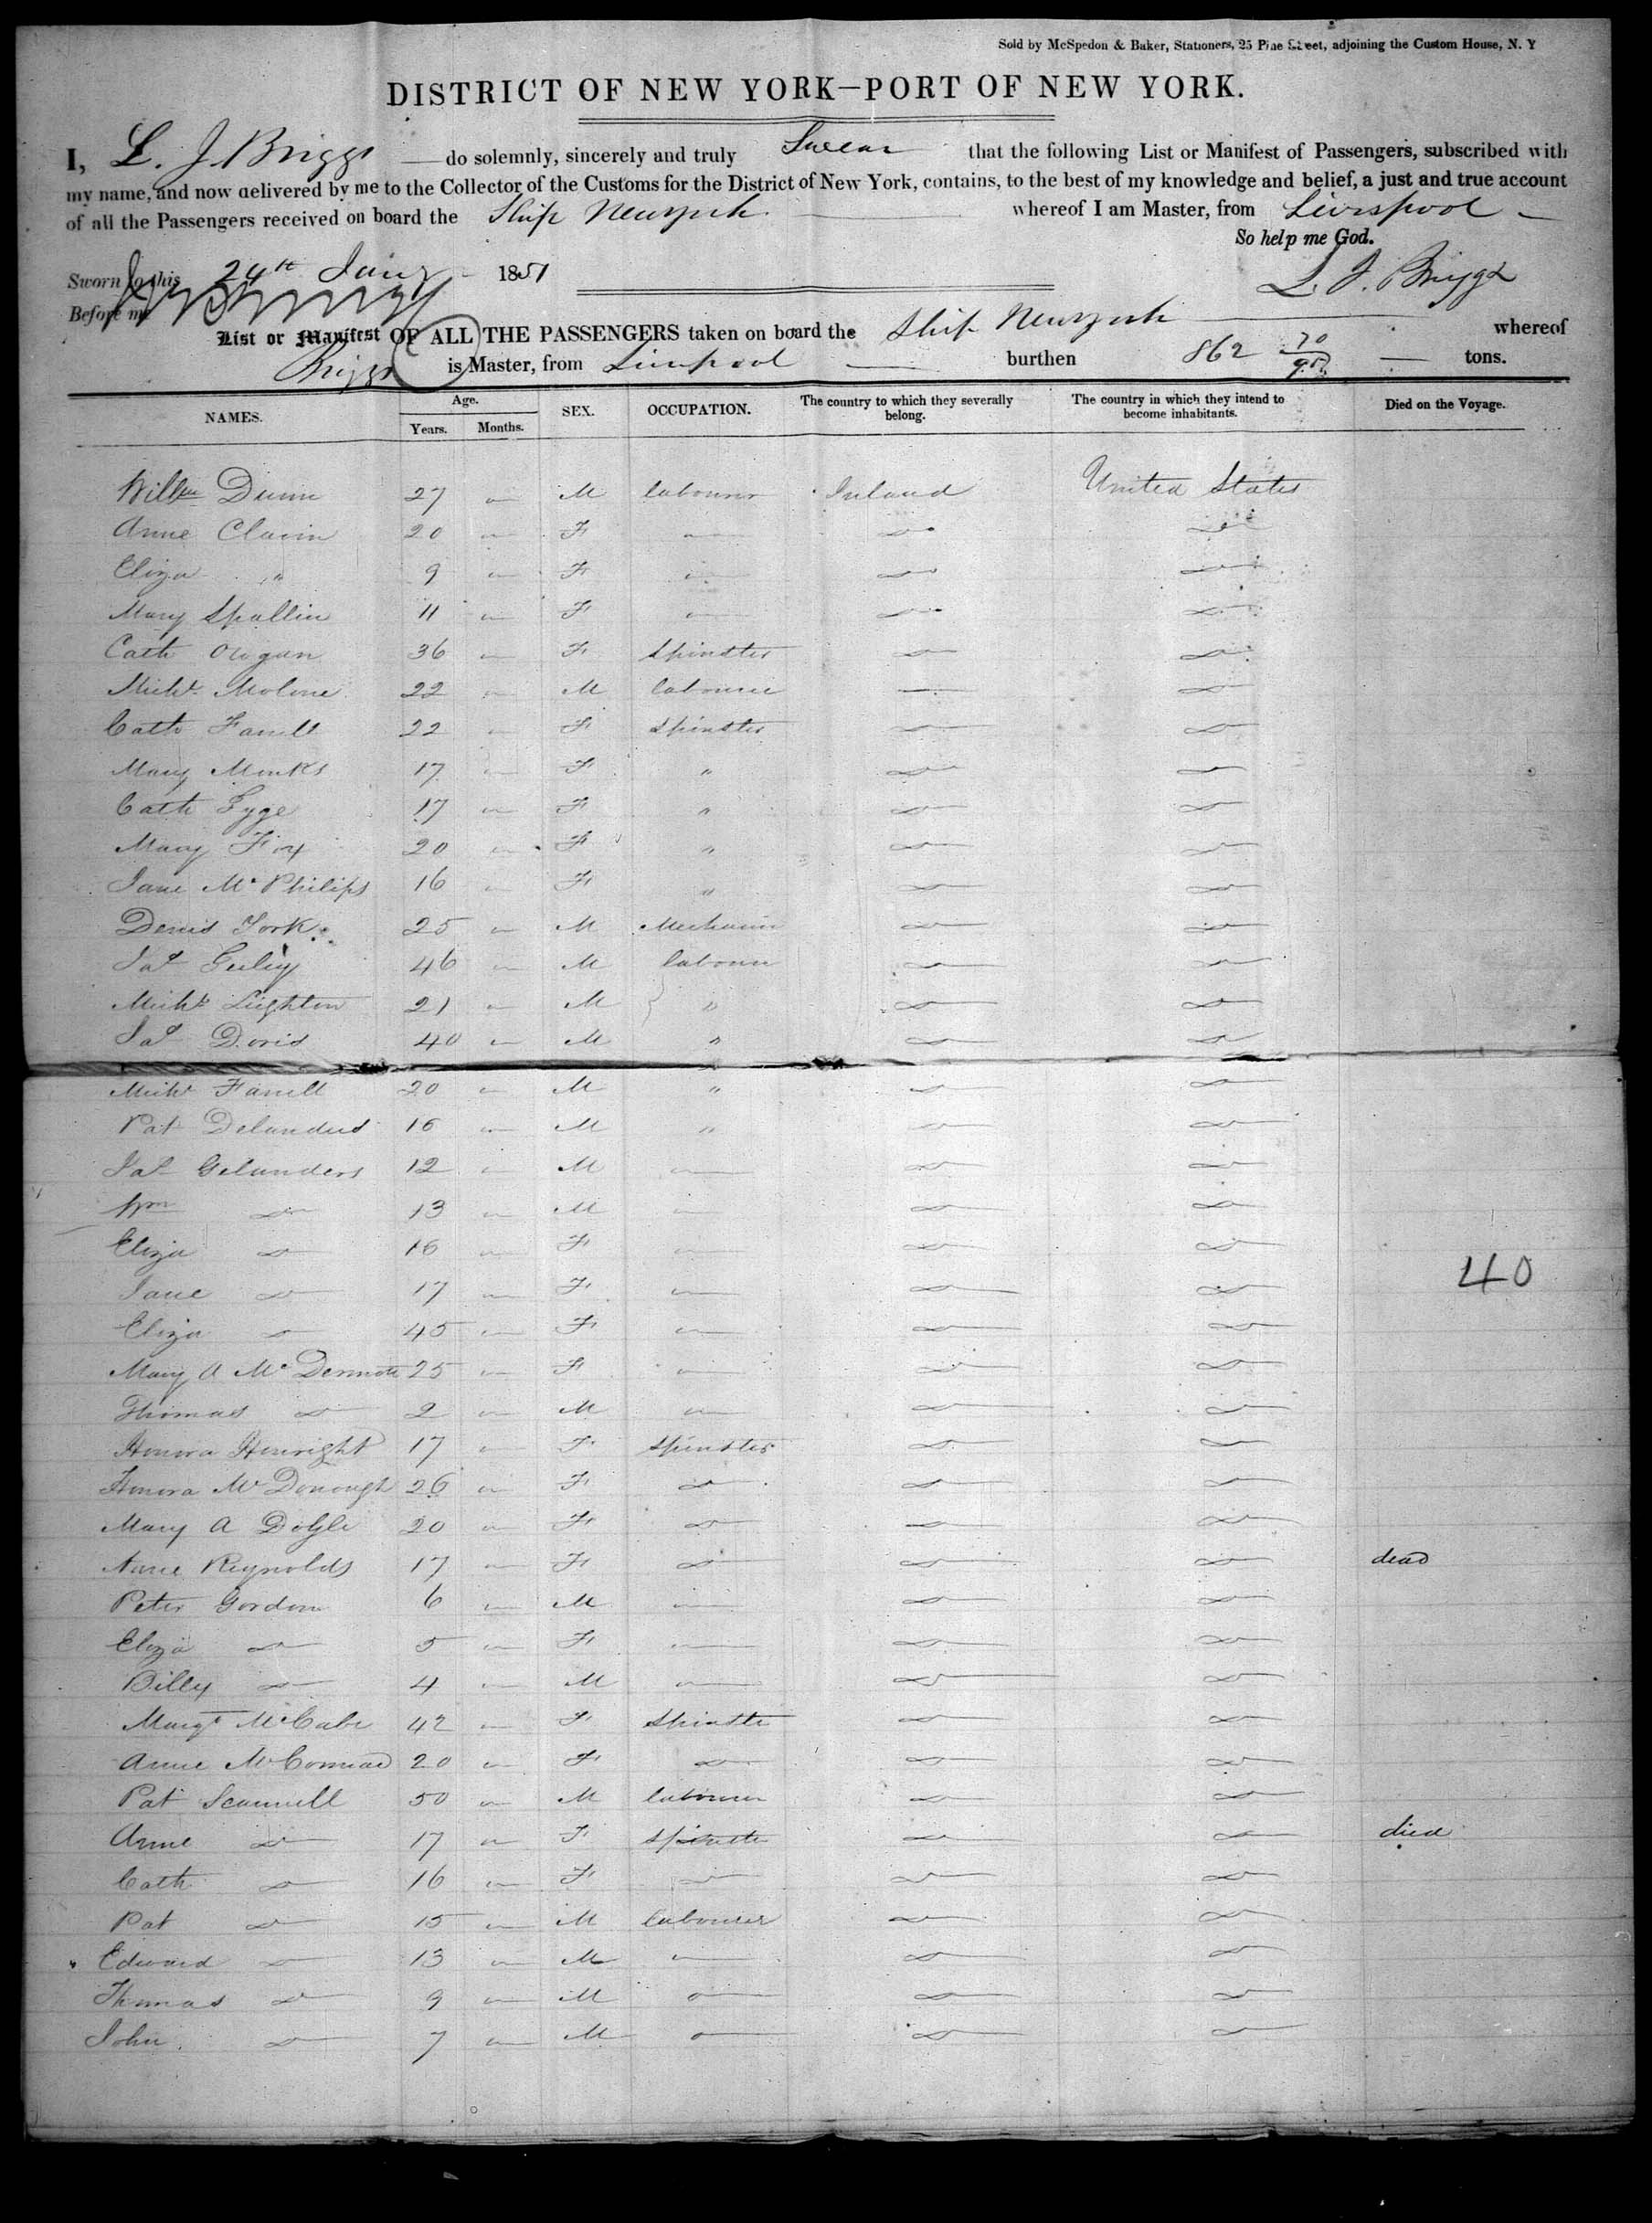 Sold by McSpedon & Baker, Stationers, 25 Pine Street, adjoining the Custom House, N. Y
DISTRICT OF NEW YORK—PORT OF NEW YORK.
I, L. J. Briggs do solemnly, sincerely and truly Swear that the following List or Manifest of Passengers, subscribed with
my name, and now delivered by me to the Collector of the Customs for the District of New York, contains, to the best of my knowledge and belief, a just and true account
of all the Passengers received on board the Ship New York whereof I am Master, from Liverpool
So help me God.
Sworn to this 24th Jany 1851 L. J. Briggs
Before me
List or Manifest OF ALL THE PASSENGERS taken on board the Ship New York whereof
Briggs is Master, from Liverpool burthen 862 70/95 tons.
NAMES. Age. Years. Months. SEX. OCCUPATION. The country to which they severally belong. The country in which they intend to become inhabitants. Died on the Voyage.
Willm Dunn 27 M labourer Ireland United States
Anne Clavin 20 F
Eliza " 9 F
Mary Spallin 11 F
Cath 36 F Spinster
Michl Molone 22 M labourer
Cath Farrell 22 F Spinster
Mary Monks 17 F "
Cath Tyge 17 F "
Mary Fox 20 F "
Jane Mc Philips 16 F "
Denis York 25 M Mechanic
Jas 46 M labourer
Michl Leighton 21 M "
Jas Doris 40 M "
Michl Farrell 20 M "
Pat 16 M "
Jas Gelanders 12 M
Wm do 13 M
Eliza do 16 F
Jane do 17 F
Eliza do 45 F
Mary A Mc Dermott 25 F
Thomas do 2 M
Honora Henright 17 F Spinster
Honora Mc Donough 26 F do
Mary A Doyle 20 F do
Anne Reynolds 17 F do dead
Peter Gordon 6 M
Eliza do 5 F
Billy do 4 M
Margt McCabe 42 F Spinster
Anne 20 F do
Pat Scannell 50 M labourer
Anne do 17 F spinster died
Cath do 16 F do
Pat do 15 M labourer
Edward do 13 M
Thomas do 9 M
John do 7 M
40